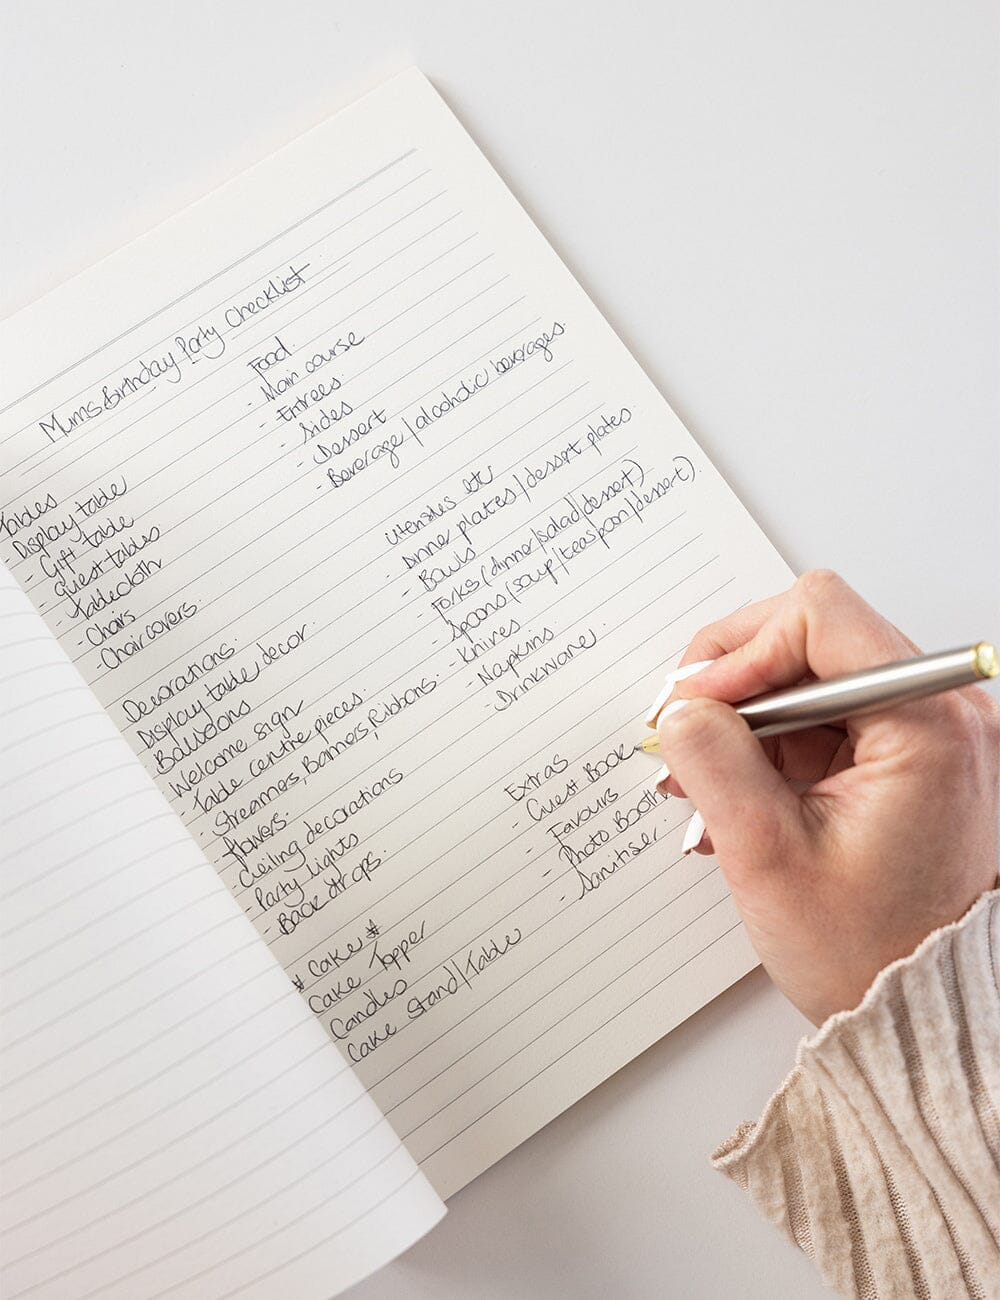 Mums Birthday Party Checklist
Tables
Display table
- Gift table
- guest tables
- Tablecloth
- Chairs
- Chair covers.
Decorations:
Display table decor.
- Balloons
- Welcome sign
- Table centre pieces.
- Streamers, Banners, Ribbons.
- flowers.
- Ceiling decorations
- Party lights
- Back drops.
* Cake *
Cake Topper
Candles
Cake Stand/Table
Food.
- Main course
- Entrees.
- Sides
- Dessert
- Beverage/alcoholic beverages.
Utensiles etc
- Dinner plates/dessert plates.
- Bowls
- Forks (dinner/salad/dessert)
- Spoons (soup/teaspoon/dessert).
- Knives
- Napkins.
- Drinkware.
Extras
- Guest Book
- Favours
- Photo Booth
- Sanitiser.